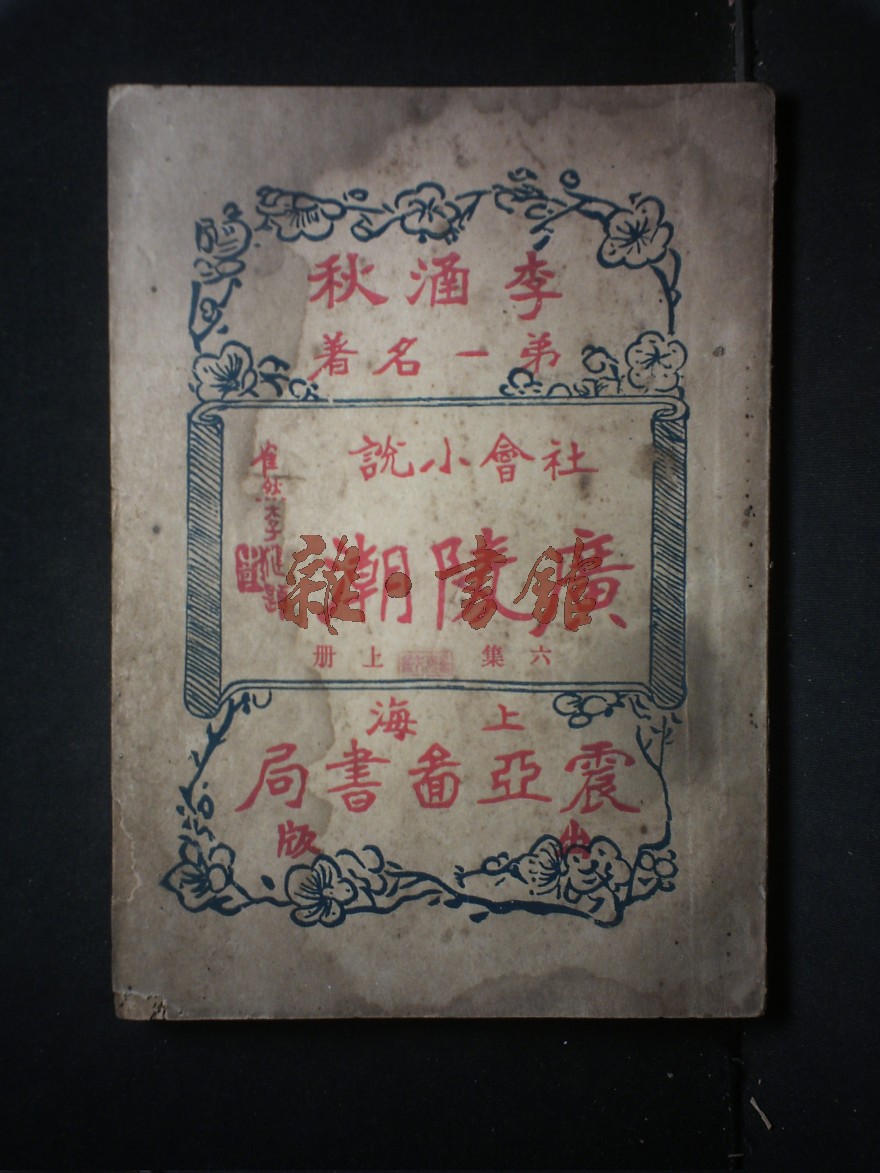 李涵秋
弟一名著
社會小說
廣陵潮
六集 上册
上海
震亞啚書局
出版
雜·書館